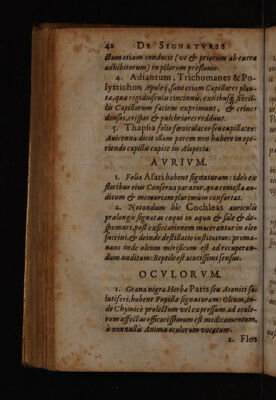 42 DE SIGNATVRIS
ctum etiam conducit (vt & priorum ab extra
adhibitorum) in pilorum profluuio.
4. Adiantum, Trichomanes & Po-
lytrichon Apuleij, sunt etiam Capillares plan-
tæ, quæ rigidiusculis cincinnis, exilibusq; fibril-
lis Capillorum faciem exprimunt, & crines
densos, crispos & pulchriores reddunt.
5. Thapsia folio fœniculaceo seu capillaceo:
Auicenna dicit illam parem non habere in ope-
riendo capillis capite in Alopecia.
AVRIVM.
1. Folia Asari habent signaturam: ideò ex
floribus eius Conserua paratur, quæ comesta au-
ditum & memoriam plurimùm confortat.
2. Notandum hîc Cochleas auriculis
prælongis signatas coqui in aqua & sale & de-
spumari, post exsiccationem macerantur in oleo
succini, & deinde destillatio instituitur: proma-
nans inde oleum mirificum est ad recuperan-
dum auditum: Reptile est acutissimi sensus.
OCVLORVM.
1. Grana nigra Herbæ Paris seu Aconiti sa-
lutiferi, habent Pupillæ signaturam: Oleum, in-
de Chymicè prolectum vel expressum, ad oculo-
rum affectus efficacissimum est medicamentum,
à nonnullis Anima oculorum vocatum.
2. Flos